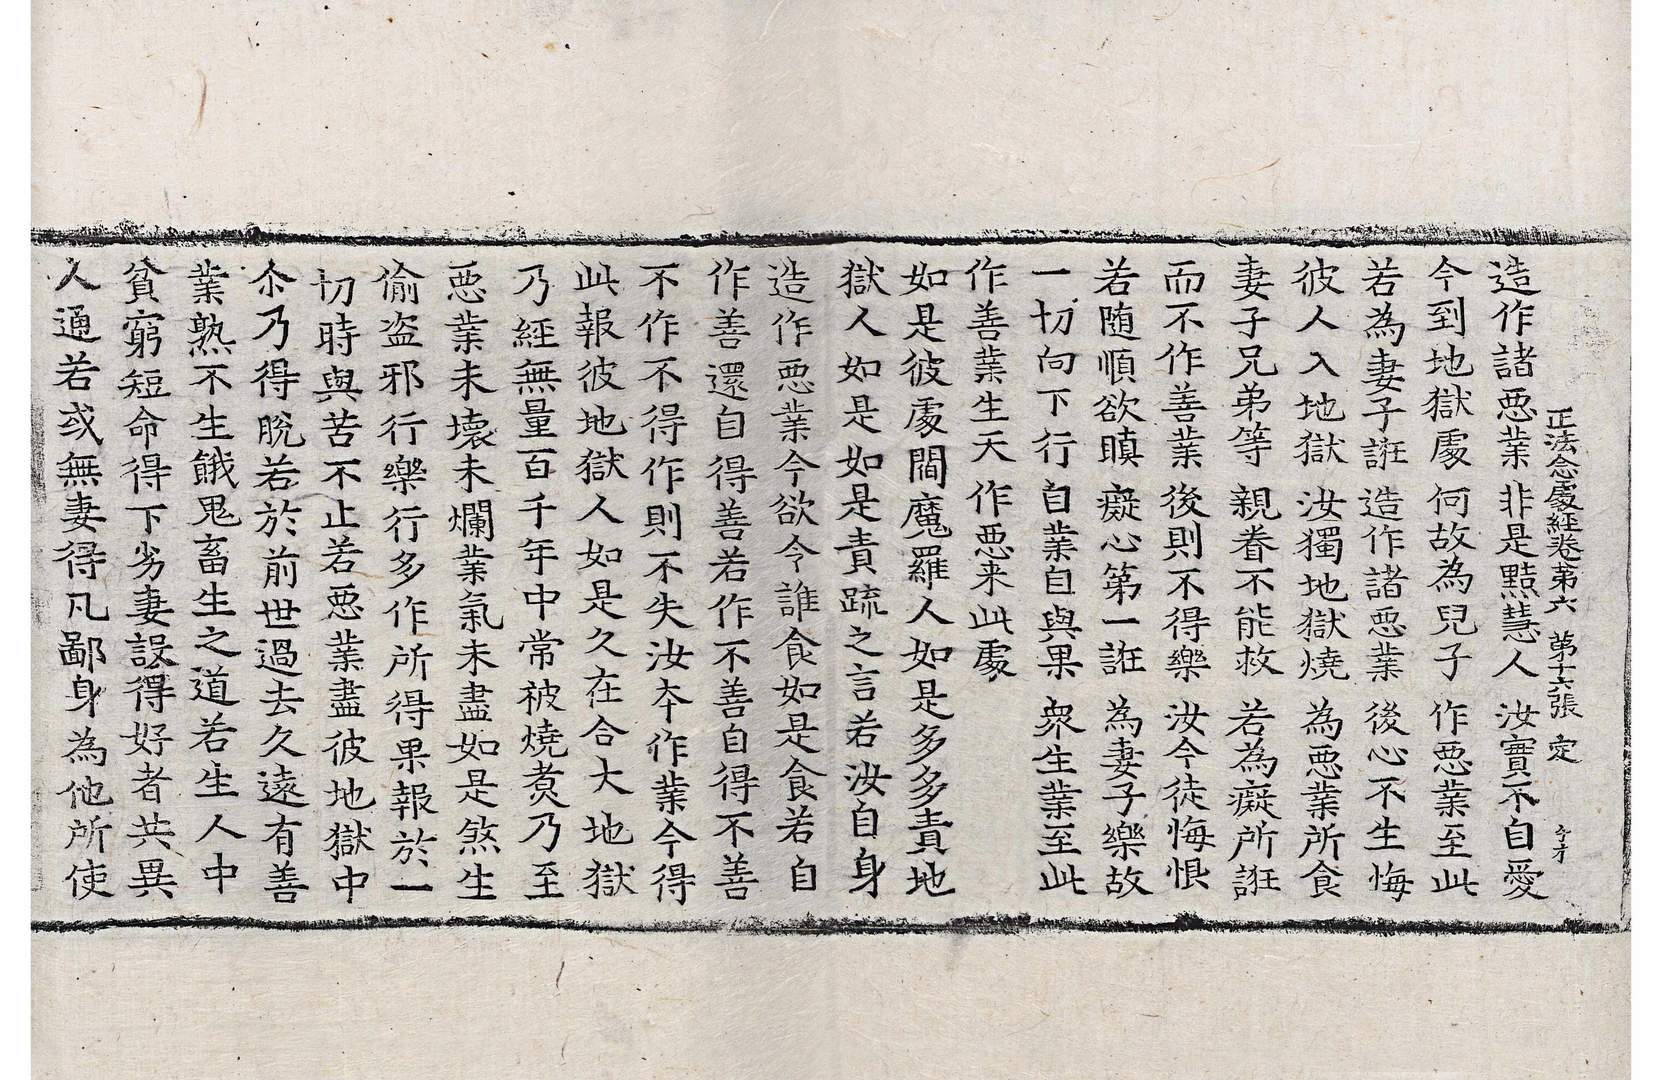 正法念處經卷第六 第十六張 定
造作諸惡業 非是黠慧人 汝實不自愛
今到地獄處 何故為兒子 作惡業至此
若為妻子誑 造作諸惡業 後心不生悔
彼人入地獄 汝獨地獄燒 為惡業所食
妻子兄弟等 親眷不能救 若為癡所誑
而不作善業 後則不得樂 汝今徒悔惧
若隨順欲瞋 癡心第一誑 為妻子樂故
一切向下行 自業自與果 眾生業至此
作善業生天 作惡来此處
如是彼處閻魔羅人如是多多責地
獄人如是如是責疏之言若汝自身
造作惡業今欲令誰食如是食若自
作善還自得善若作不善自得不善
不作不得作則不失汝本作業今得
此報彼地獄人如是久在合大地獄
乃經無量百千年中常被燒煮乃至
惡業未壞未爛業氣未盡如是煞生
偷盗邪行樂行多作所得果報於一
切時與苦不止若惡業盡彼地獄中
尒乃得脫若於前世過去久遠有善
業熟不生餓鬼畜生之道若生人中
貧窮短命得下劣妻設得好者共異
人通若或無妻得凡鄙身為他所使